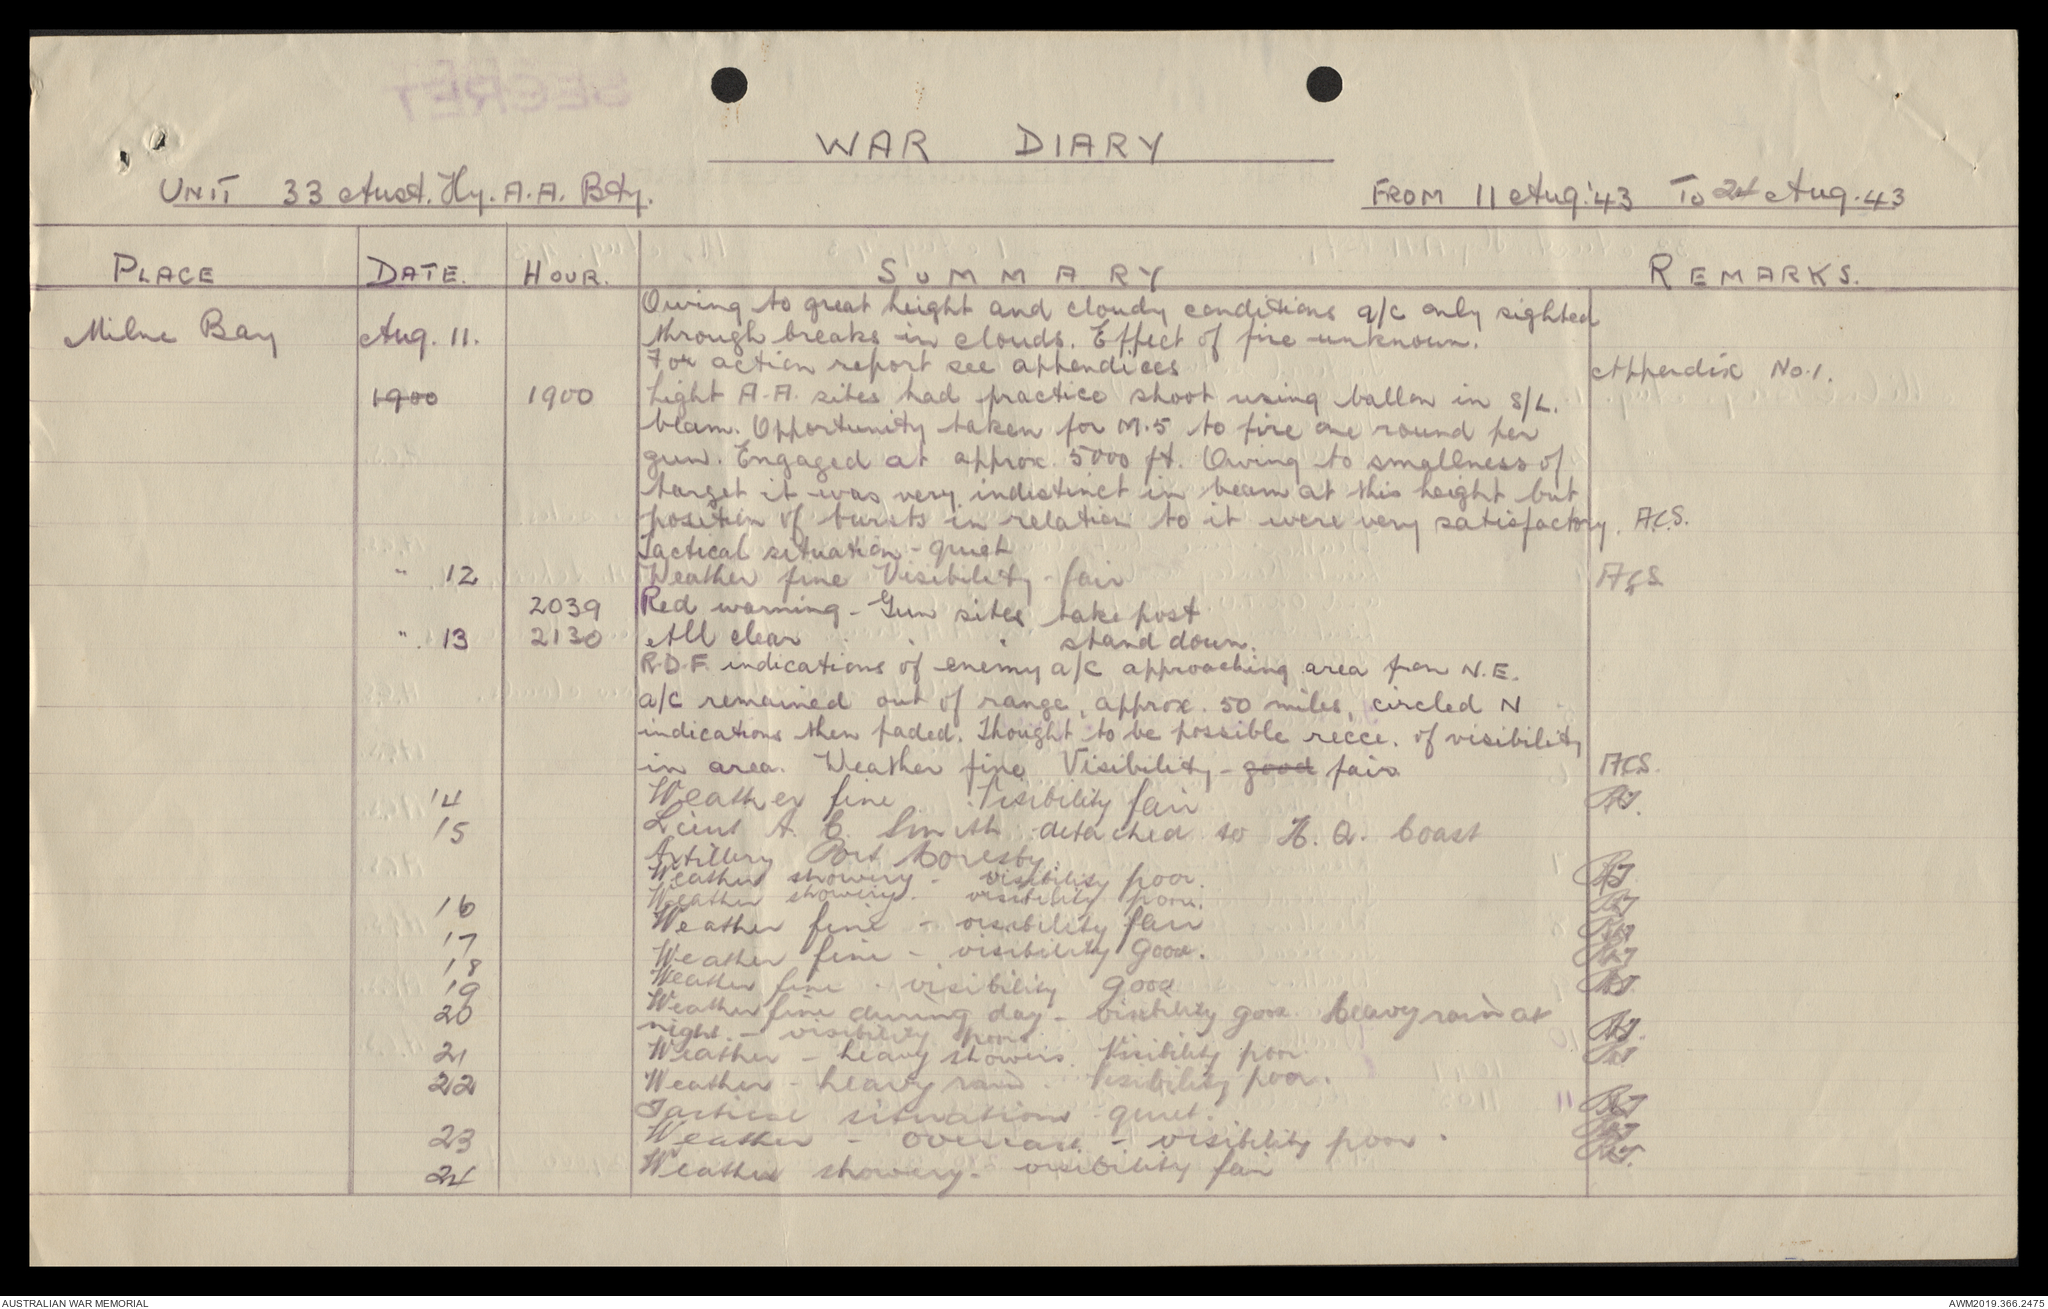 WAR DIARY
UNIT 33 Aust. Hy. A.A. Bty. FROM 11 Aug. '43 TO 24 Aug. 43
PLACE DATE. HOUR. SUMMARY REMARKS.
Owing to great height and cloudy conditions a/c only sighted
Milne Bay Aug. 11. through breaks in clouds. Effect of fire unknown.
For action report see appendices Appendix No. 1.
1900 1900 Light A.A. sites had practice shoot using ballon in S/L.
beam. Opportunity taken for M.5 to fire one round per
gun. Engaged at approx. 5000 ft. Owing to smallness of
target it was very indistinct in beam at this height but
position of bursts in relation to it were very satisfactory. A.C.S.
Tactical situation - quiet
" 12 Weather fine Visibility - fair ACS
2039 Red warning - Gun sites take post
" 13 2130 All clear " " stand down.
R.D.F. indications of enemy a/c approaching area from N.E.
a/c remained out of range, approx. 50 miles, circled N
indications then faded. Thought to be possible recce. of visibility
in area. Weather fine Visibility - good fair ACS.
14 Weather fine. Visibility fair
15 Lieut A. C. Smith detached to H.Q. Coast
Artillery Port Moresby.
Weather showery - visibility poor.
16 Weather showery. visibility poor.
17 Weather fine - visibility fair
18 Weather fine - visibility good.
19 Weather fine - visibility good
20 Weather fine during day - visibility good. heavy rain at
night. - visibility poor
21 Weather - heavy showers. Visibility poor
22 Weather - heavy rain. Visibility poor.
Tactical situation - quiet.
23 Weather - overcast - visibility poor.
24 Weather showery - visibility fair
AUSTRALIAN WAR MEMORIAL AWM2019.366.2475